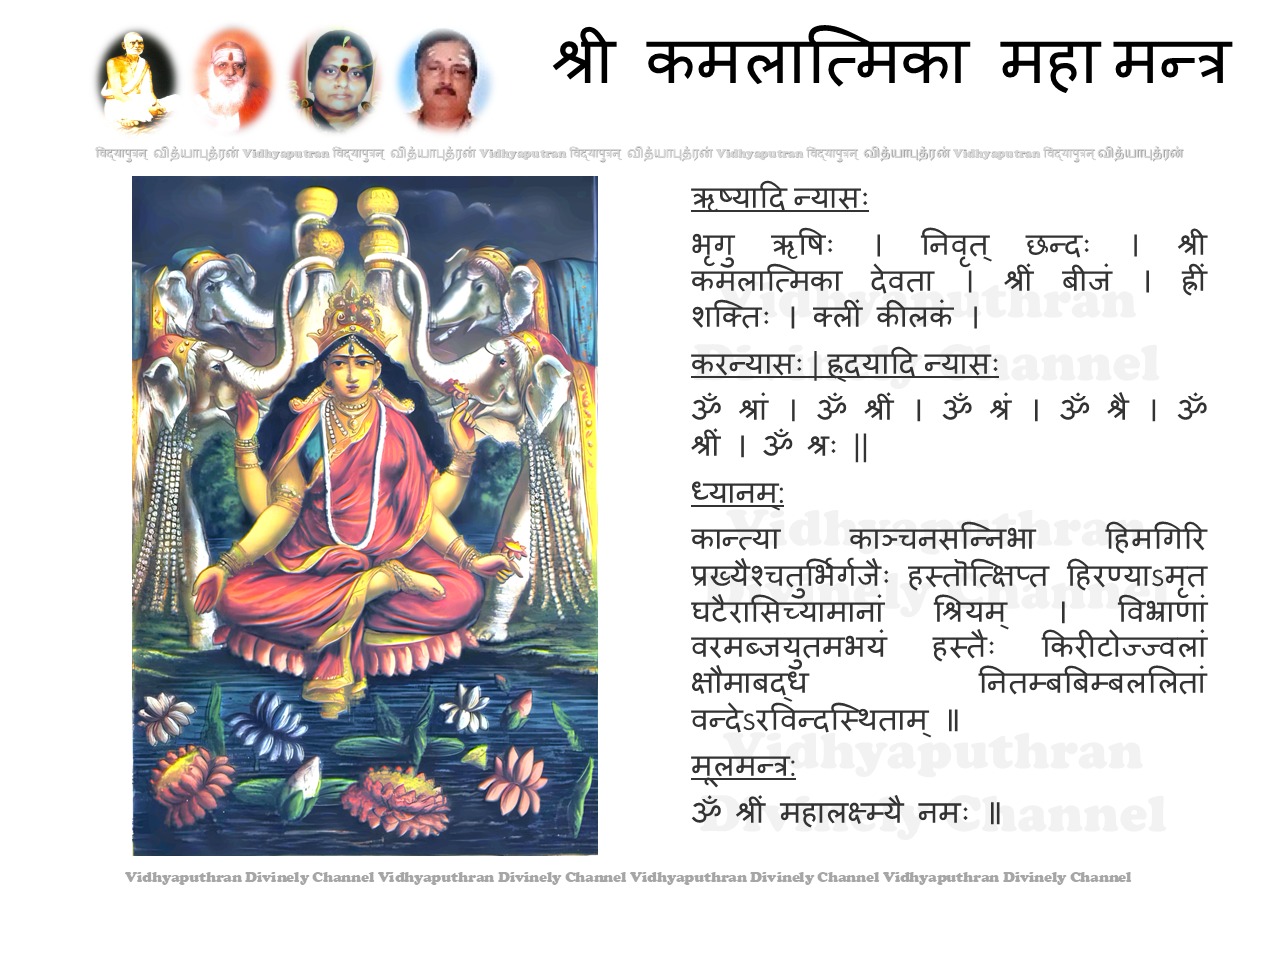 श्री कमलात्मिका महा मन्त्र
विद्यापुत्रन् வித்யாபுத்ரன் Vidhyaputran विद्यापुत्रन् வித்யாபுத்ரன் Vidhyaputran विद्यापुत्रन् வித்யாபுத்ரன் Vidhyaputran विद्यापुत्रन् வித்யாபுத்ரன் Vidhyaputran विद्यापुत्रन् வித்யாபுத்ரன்
ऋष्यादि न्यासः
भृगु ऋषिः । निवृत् छन्दः । श्री
कमलात्मिका देवता । श्रीं बीजं । ह्रीं
शक्तिः । क्लीं कीलकं ।
करन्यासः | ह्रदयादि न्यासः
ॐ श्रां । ॐ श्रीं । ॐ श्रं । ॐ श्रै । ॐ
श्रीं । ॐ श्रः ||
ध्यानम्:
कान्त्या काञ्चनसन्निभा हिमगिरि
प्रख्यैश्चतुर्भिर्गजैः हस्तॊत्क्षिप्त हिरण्याऽमृत
घटैरासिच्यामानां श्रियम् । विभ्राणां
वरमब्जयुतमभयं हस्तैः किरीटोज्ज्वलां
क्षौमाबद्ध नितम्बबिम्बललितां
वन्देऽरविन्दस्थिताम् ॥
मूलमन्त्र:
ॐ श्रीं महालक्ष्म्यै नमः ॥
Vidhyaputhran
Divinely Channel
Vidhyaputhran
Divinely Channel
Vidhyaputhran
Divinely Channel
Vidhyaputhran Divinely Channel Vidhyaputhran Divinely Channel Vidhyaputhran Divinely Channel Vidhyaputhran Divinely Channel